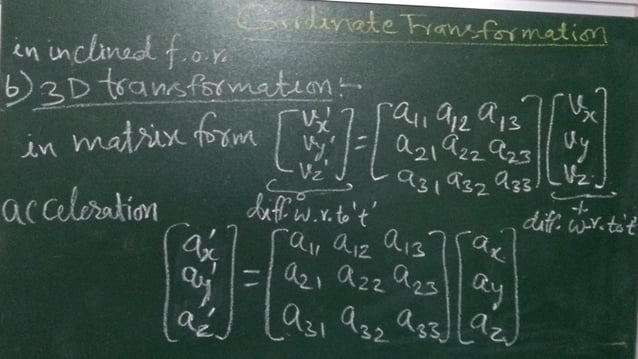 Coordinate Transformation
in inclined f.o.r.
b) 3D transformation:-
in matrix form [vx' vy' vz'] = [a11 a12 a13 a21 a22 a23 a31 a32 a33] [vx vy vz]
acceleration diff. w.r.to 't' diff. w.r.to 't'
[ax' ay' az'] = [a11 a12 a13 a21 a22 a23 a31 a32 a33] [ax ay az]